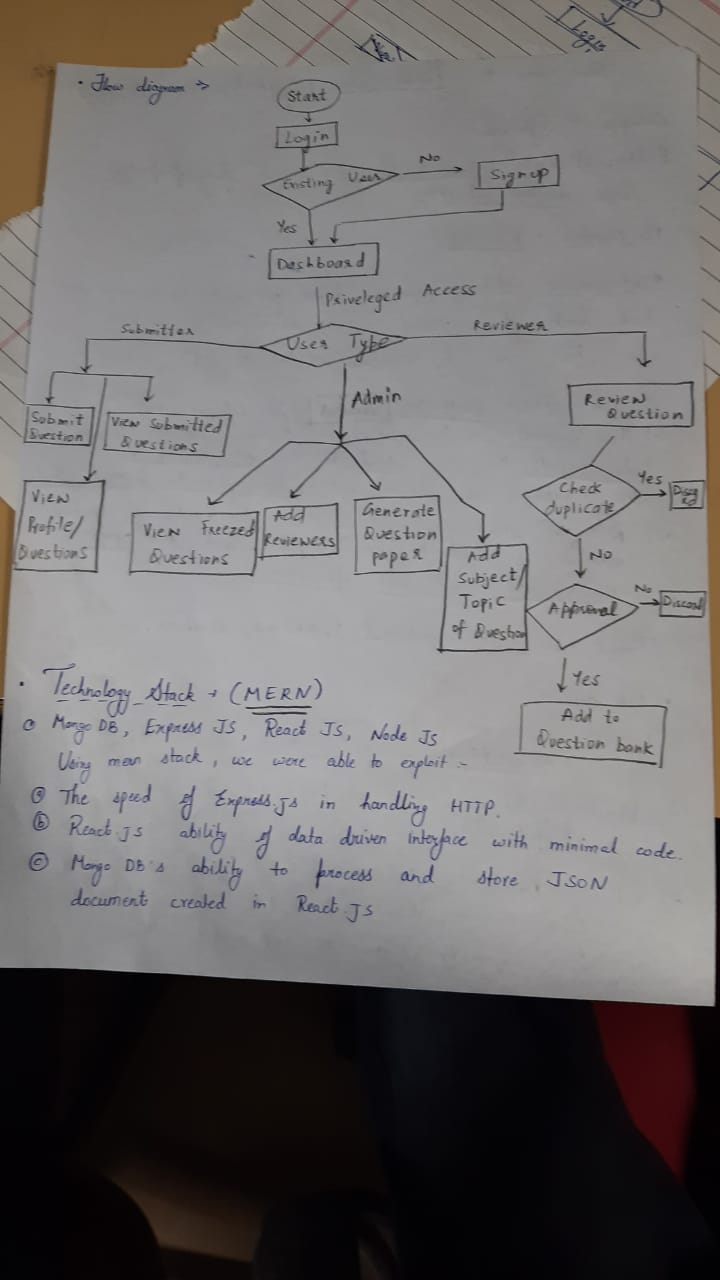 Login
• Flow diagram →
Start
Login
Existing User
No
Signup
Yes
Dashboard
Priveleged Access
Submitter
User Type
Reviewer
Admin
Submit
Question
View Submitted
Questions
View
Profile/
Questions
View Freezed
Questions
Add
Reviewers
Generate
Question
paper
Add
Subject/
Topic
of Question
Review
Question
Check
duplicate
Yes
No
Approval
No
Discard
Yes
Add to
Question bank
• Technology Stack → (MERN)
Mongo DB, Express JS, React JS, Node JS
Using mern stack, we were able to exploit :-
ⓐ The speed of Express.js in handling HTTP.
ⓑ React.js ability of data driven interface with minimal code.
ⓒ Mongo DB's ability to process and store JSON
document created in React.JS